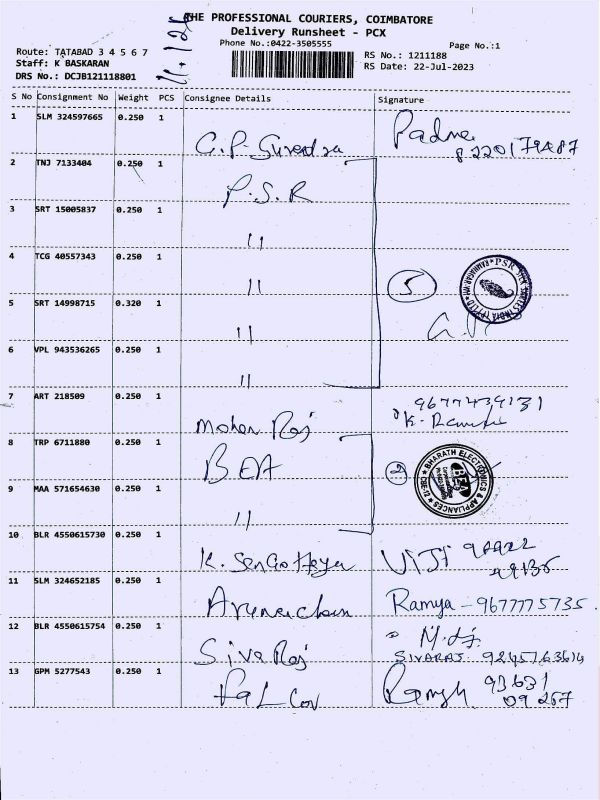 THE PROFESSIONAL COURIERS, COIMBATORE
Delivery Runsheet - PCX
Phone No.:0422-3505555
Page No.:1
Route: TATABAD 3 4 5 6 7
Staff: K BASKARAN
DRS No.: DCJB121118801
RS No.: 1211188
RS Date: 22-Jul-2023
S No Consignment No Weight PCS Consignee Details Signature
1 SLM 324597665 0.250 1 G.P. Surendra Padma
8220179487
2 TNJ 7133404 0.250 1 P.S.R
3 SRT 15005837 0.250 1 11
4 TCG 40557343 0.250 1 11 5
5 SRT 14998715 0.320 1 11
6 VPL 943536265 0.250 1 11
7 ART 218509 0.250 1 Mohan Raj 9677439131
8 TRP 6711880 0.250 1 BEA 2
BHARATH ELECTRONICS & APPLIANCES
9 MAA 571654630 0.250 1 11
10 BLR 4550615730 0.250 1 UIJI
11 SLM 324652185 0.250 1 Arunacham Ramya - 9677775735
12 BLR 4550615754 0.250 1 Siva Raj
SIVARAJ
13 GPM 5277543 0.250 1 Falcon 93631
09267